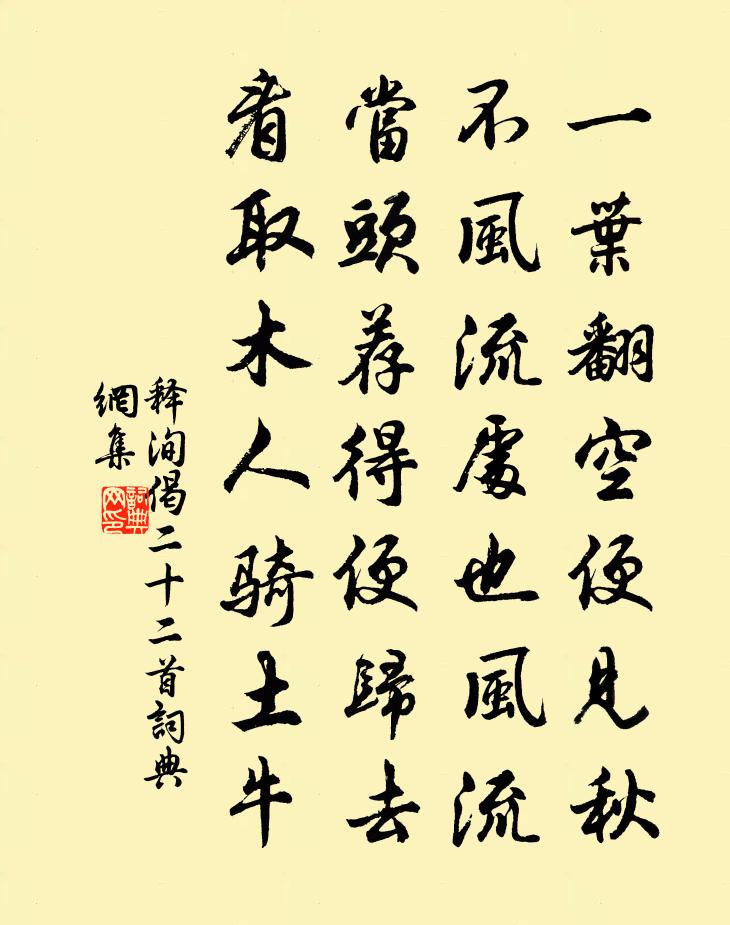 一葉翻空便見秋
不風流處也風流
當頭荐得便歸去
看取木人騎土牛
释洵偈二十二首詞典
網集
詞典
网印